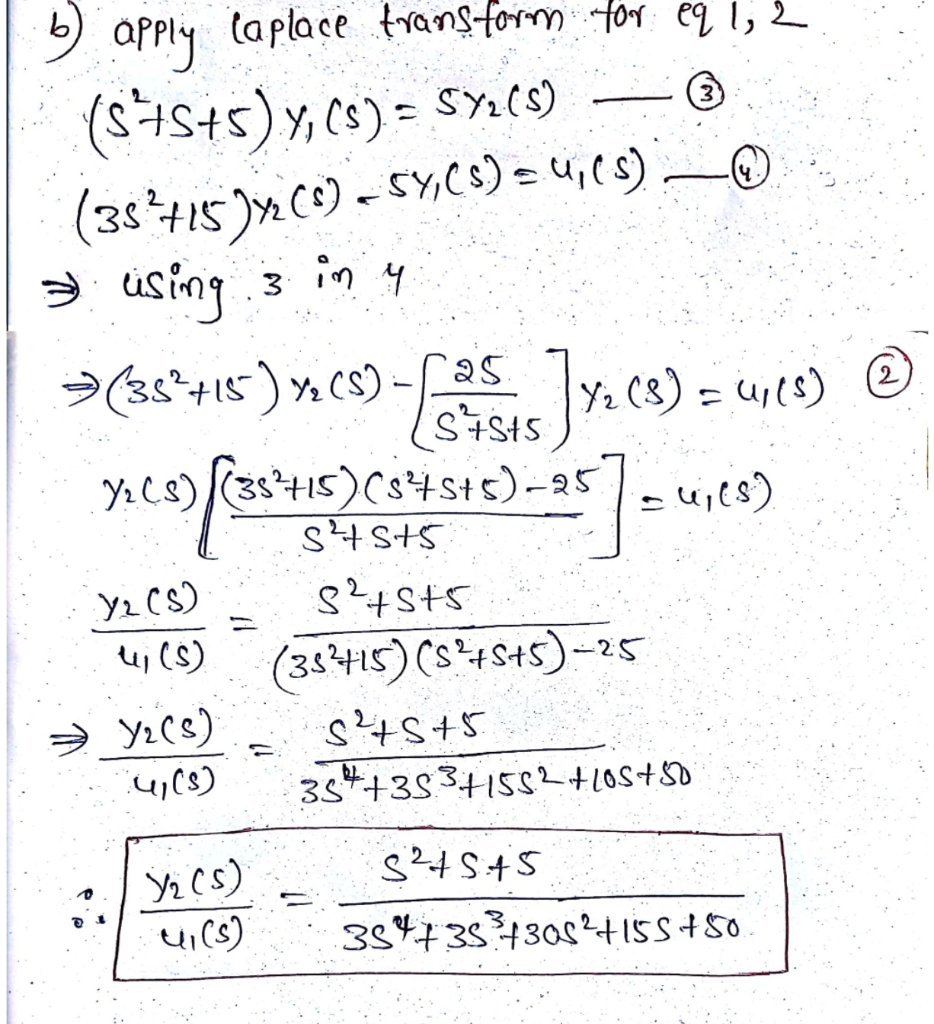 b) apply laplace transform for eq 1, 2
(s²+s+5) Y₁(s) = 5Y₂(s) — ③
(3s²+15)Y₂(s) - 5Y₁(s) = u₁(s) — ④
⇒ using 3 in 4
⇒ (3s²+15) Y₂(s) - [25/(s²+s+5)] Y₂(s) = u₁(s) ②
Y₂(s) [((3s²+15)(s²+s+5)-25)/(s²+s+5)] = u₁(s)
Y₂(s)/u₁(s) = (s²+s+5)/((3s²+15)(s²+s+5)-25)
⇒ Y₂(s)/u₁(s) = (s²+s+5)/(3s⁴+3s³+15s²+10s+50)
∴ Y₂(s)/u₁(s) = (s²+s+5)/(3s⁴+3s³+30s²+15s+50)